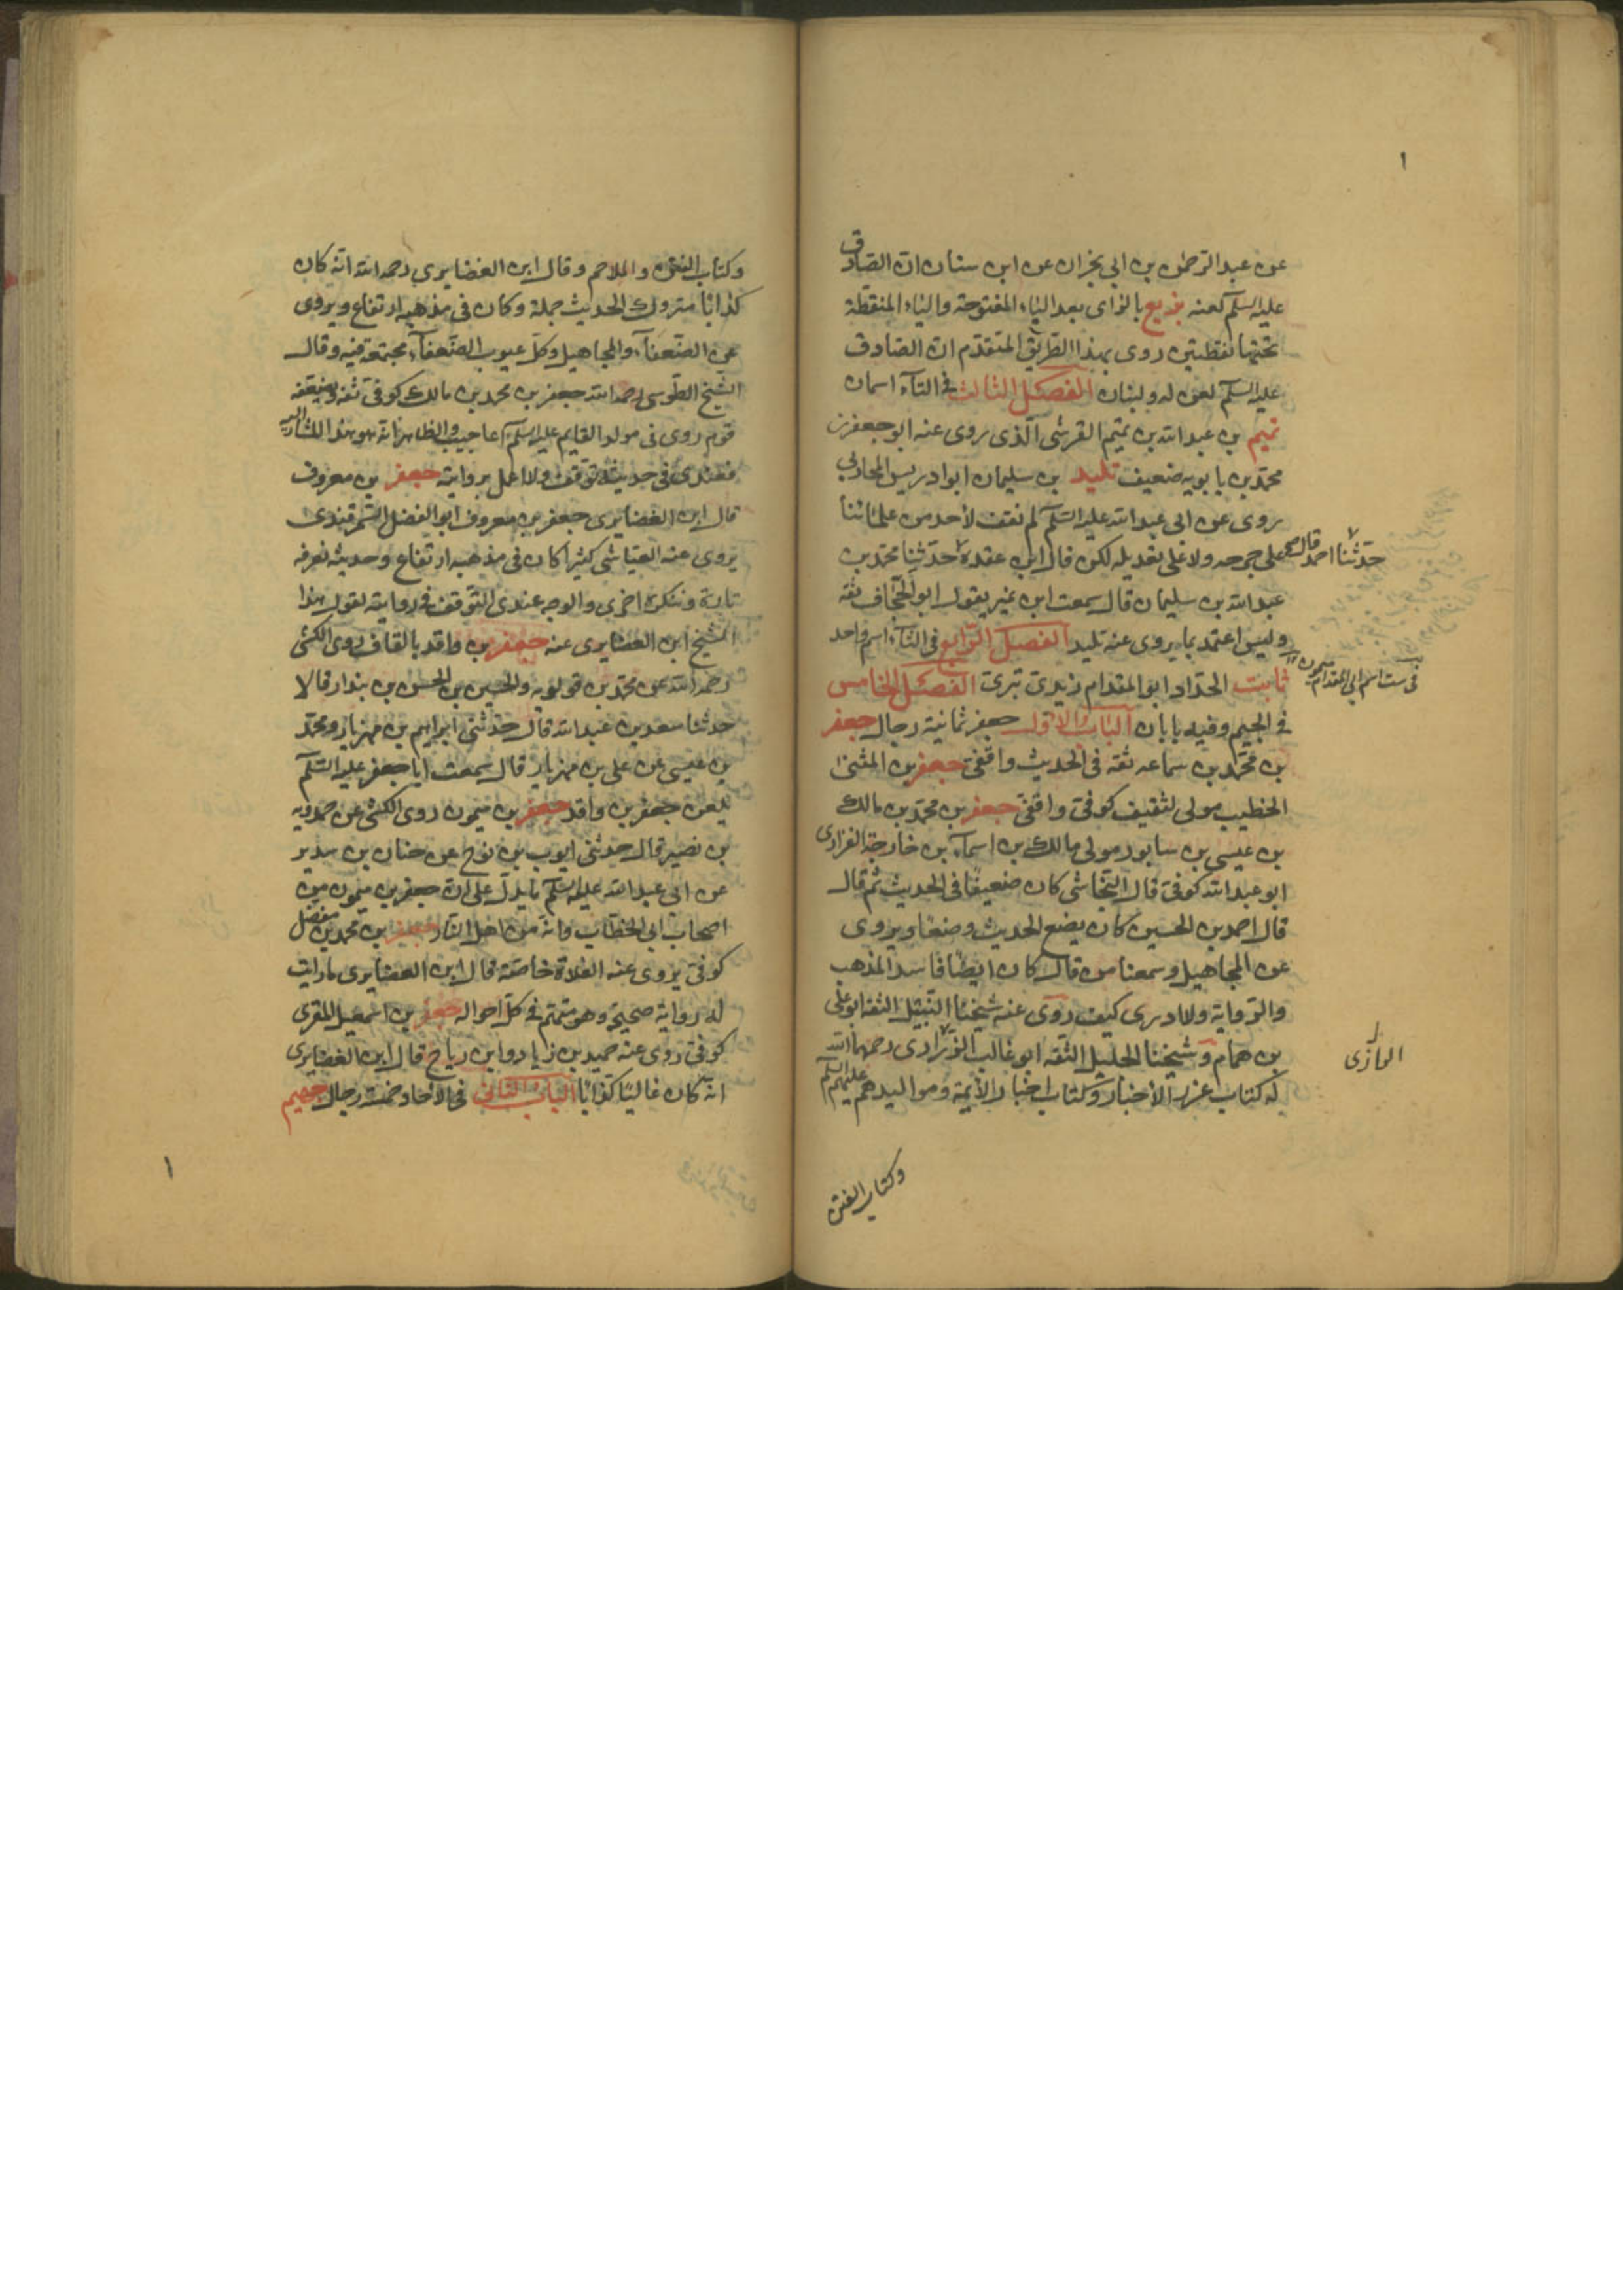 ١
عن عبد الرحمن بن ابى نجران عن ابن سنان ان الصادق
عليه السلم لعنه بزيع بالزاى بعد الباء المفتوحة والياء المنقطة
تحتها نقطتين روى بهذا الطريق المتقدم ان الصادق
عليه السلم لعن له ولبنان الفصل الثالث فى التآء اسمان
تميم بن عبد الله بن تميم القرشى الذى روى عنه ابو جعفر بن
محمد بن بابويه ضعيف تليد بن سليمان ابو ادريس المحاربى
روى عن ابى عبد الله عليه السلم لم نقف لأحد من علمائنا
على جرحه ولا على تعديله لكن قال ابن عقدة حدثنا محمد بن
حدثنا احمد قال
عبد الله بن سليمان قال سمعت ابن نمير يقول ابو الجحاف ثقة
وليس اعتمد بما يروى عنه تليد الفصل الرابع فى الثآء اسم واحد
فى ست اسم ابى المقدام
ثابت الحداد ابو المقدام زيدى تبرى الفصل الخامس
فى الجيم وفيه بابان الباب الاول جعفر ثمانية رجال جعفر
بن محمد بن سماعه ثقه فى الحديث واقفى جعفر بن المثنى
الخطيب مولى لثقيف كوفى واقفى جعفر بن محمد بن مالك
بن عيسى بن سابور مولى مالك بن اسمآء بن خارجة الفزارى
ابو عبد الله كوفى قال النجاشى كان ضعيفا فى الحديث ثم قال
قال احمد بن الحسين كان يضع الحديث وضعا ويروى
عن المجاهيل وسمعنا من قال كان ايضا فاسد المذهب
والرواية ولا ادرى كيف روى عنه شيخنا النبيل الثقه ابو على
بن همام وشيخنا الجليل الثقه ابو غالب الزرارى رحمهما الله
له كتاب غرر الأخبار وكتاب اخبار الأئمة ومواليدهم عليهم السلم
وكتاب الفتن
وكتاب الفتن والملاحم وقال ابن الغضايرى رحمه الله انه كان
كذابا متروك الحديث جملة وكان فى مذهبه ارتفاع ويروى
عن الضعفآء والمجاهيل وكل عيوب الضعفآء مجتمعة فيه وقال
الشيخ الطوسى رحمه الله جعفر بن محمد بن مالك كوفى ثقه ويضعفه
قوم روى فى مولد القايم عليه السلم اعاجيب والظاهر انه هو هذا المشار اليه
فعندى فى حديثه توقف ولا اعمل بروايته جعفر بن معروف
قال ابن الغضايرى جعفر بن معروف ابو الفضل السمرقندى
يروى عنه العياشى كثيرا كان فى مذهبه ارتفاع وحديثه نعرفه
تارة وننكره اخرى والوجه عندى التوقف فى روايته لقول هذا
الشيخ ابن الغضايرى عنه جعفر بن واقد بالقاف روى الكشى
رحمه الله عن محمد بن قولويه والحسين بن الحسن بن بندار قالا
حدثنا سعد بن عبد الله قال حدثنى ابراهيم بن مهزيار ومحمد
بن عيسى عن على بن مهزيار قال سمعت ابا جعفر عليه السلم
يلعن جعفر بن واقد جعفر بن ميمون روى الكشى عن حمدويه
بن نصير قال حدثنى ايوب بن نوح عن حنان بن سدير
عن ابى عبد الله عليه السلم ما يدل على ان جعفر بن ميمون من
اصحاب ابى الخطاب وانه من اهل النار جعفر بن محمد بن مفضل
كوفى يروى عنه الغلاة خاصة قال ابن الغضايرى ما رايت
له رواية صحيحة وهو متهم فى كل احواله جعفر بن اسمعيل المقرى
كوفى روى عنه حميد بن زياد وابن رياح قال ابن الغضايرى
انه كان غاليا كذابا الباب الثانى فى الآحاد خمسة رجال جهيم
١